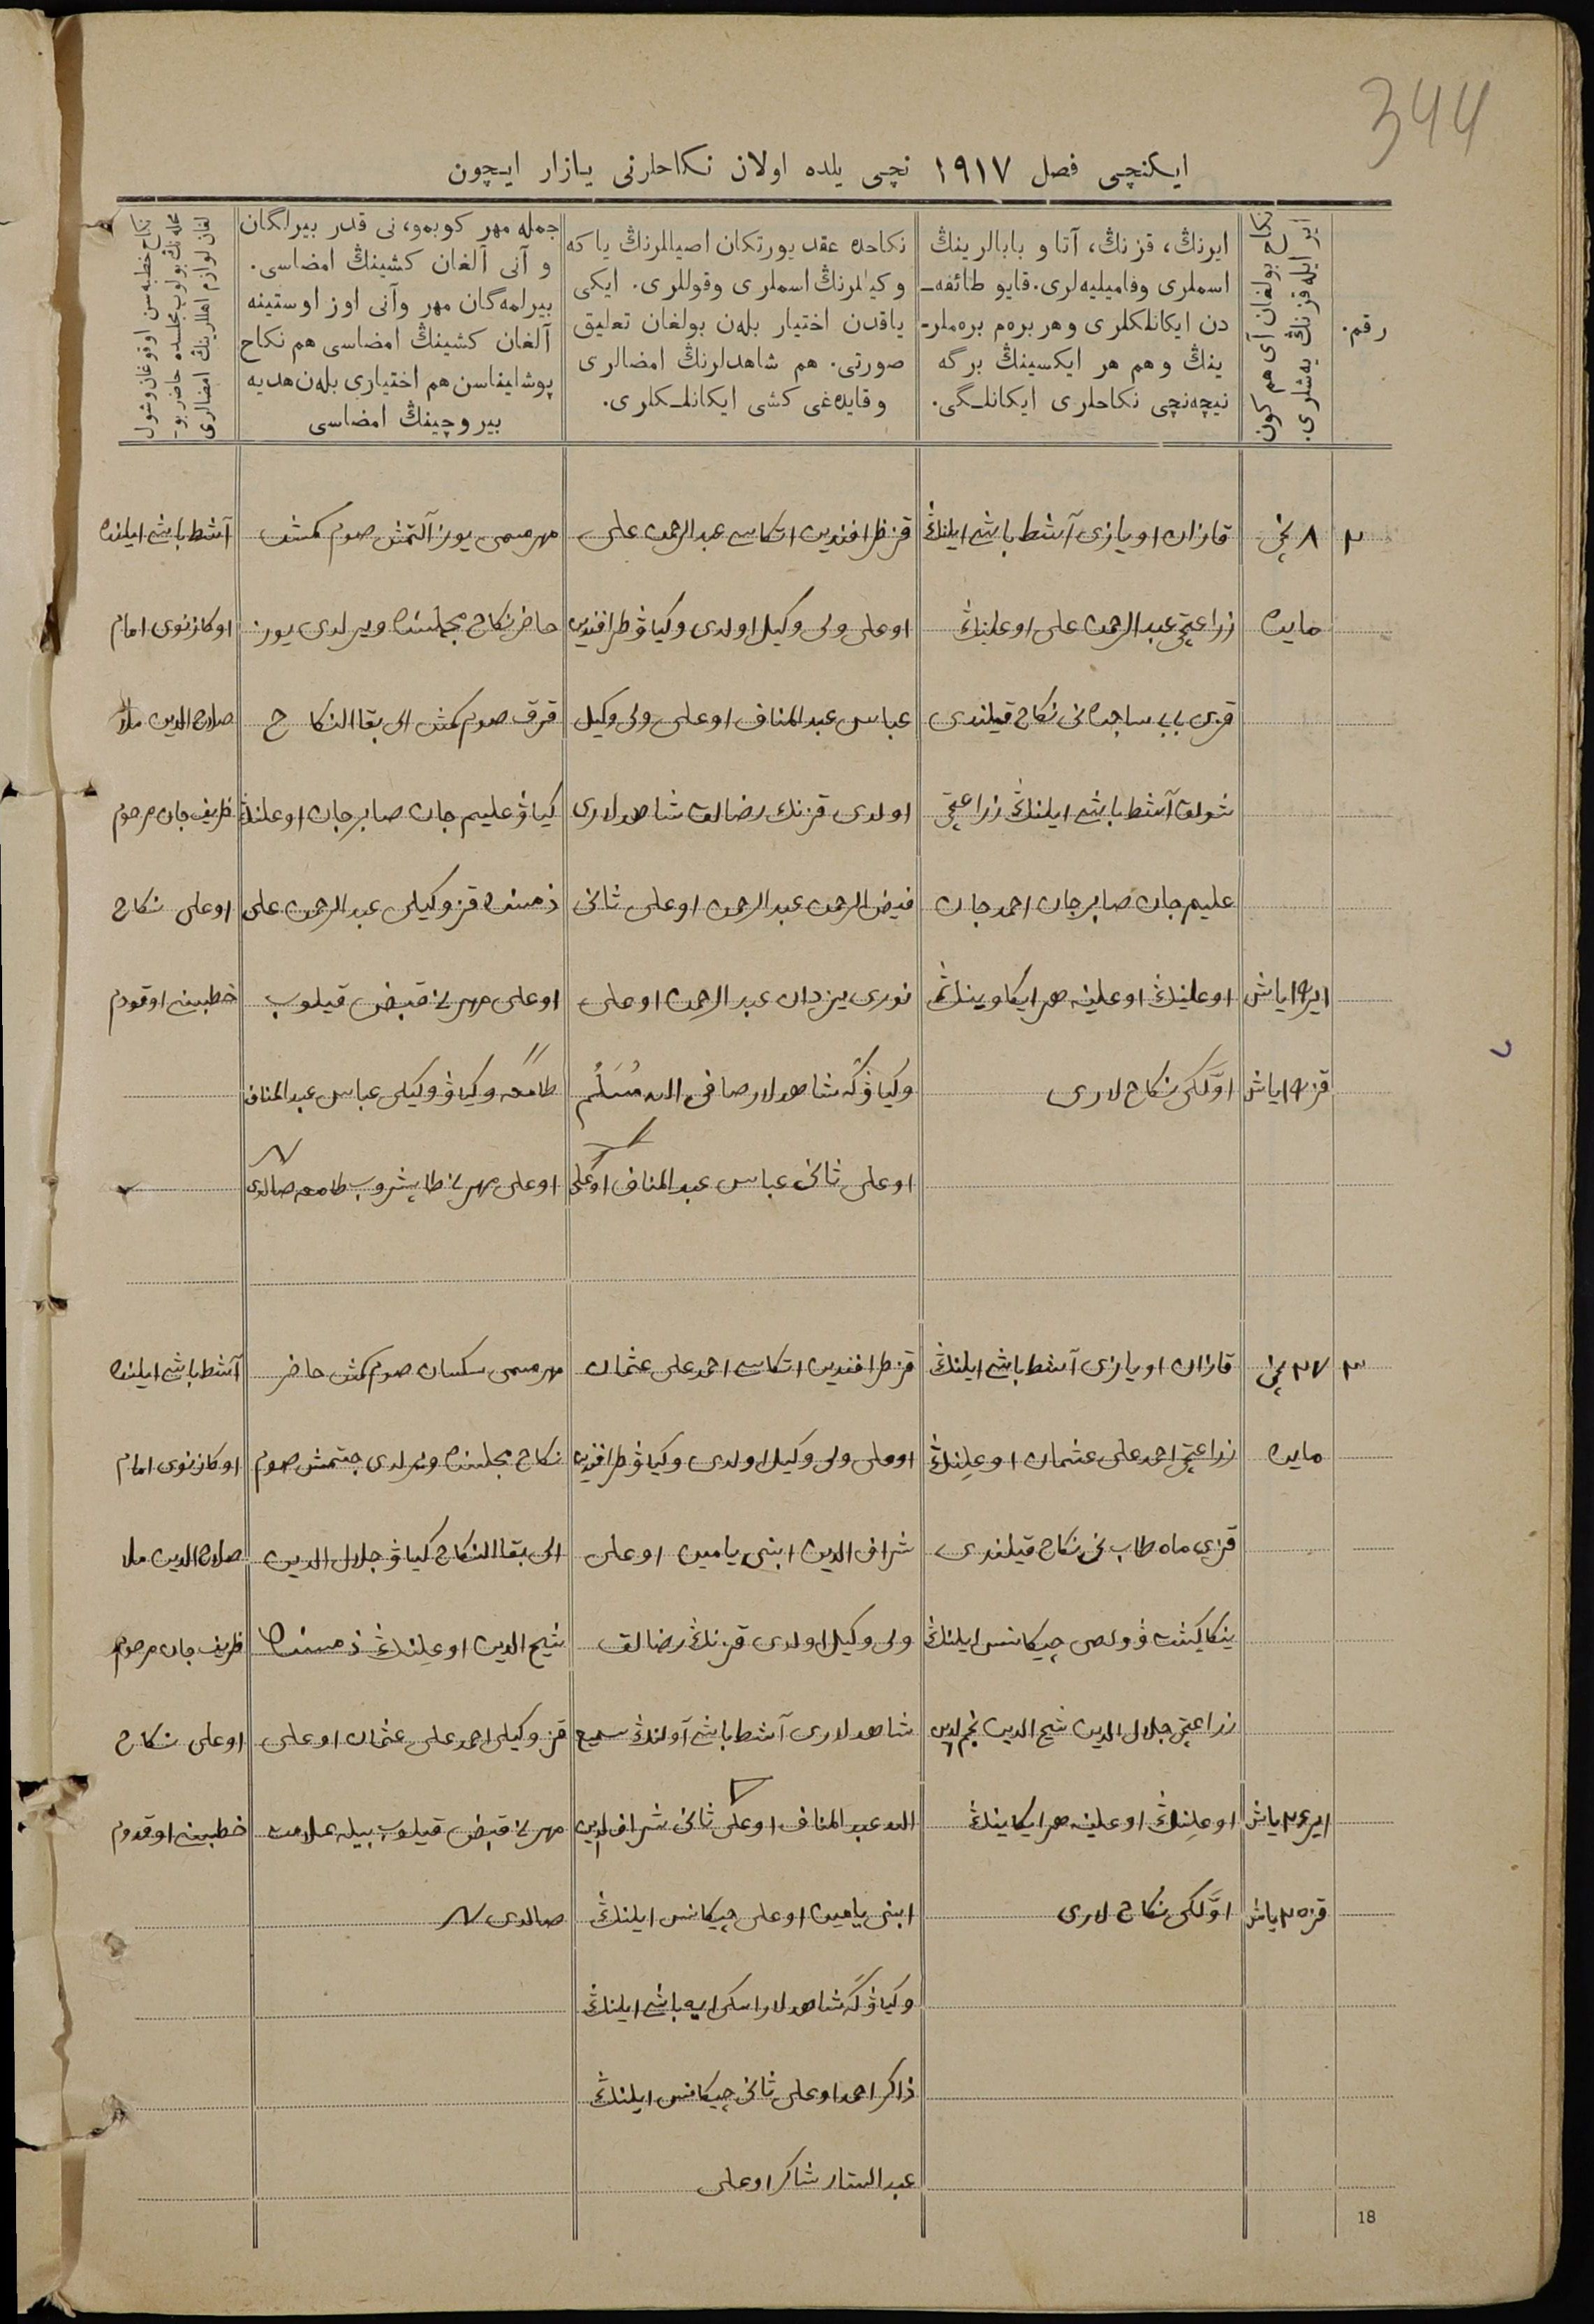 344
ایکنچی فصل ۱۹۱۷ نچی یلده اولان نکاحلرنی یازار ایچون
رقم.
نکاح بولغان آی هم کون
ایر ایله قزنڭ یه‌شلری.
ایرنڭ، قزنڭ، آتا و بابالرینڭ
اسملری وفامیلیه‌لری. قایو طائفه‌ـ
دن ایکانلکلری و هر بره‌م بره‌ملرـ
ینڭ و هم هر ایکسینڭ برگه
نیچه‌نچی نکاحلری ایکانلـگی.
نکاحده عقد یورتکان اصیللرنڭ یا که
وکیللرنڭ اسملری وقوللری. ایکی
یاقدن اختیار بله‌ن بولغان تعلیق
صورتی. هم شاهدلرنڭ امضالری
و قایده‌غی کشی ایکانلـکلری.
جمله مهر کوبمو، نی قدر بیرلگان
و آنی آلغان کشینڭ امضاسی.
بیرلمه‌گان مهر وآنی اوز اوستینه
آلغان کشینڭ امضاسی هم نکاح
پوشلیناسن هم اختیاری بله‌ن هدیه
بیروچینڭ امضاسی
نکاح خطبه‌سن اوقوغان وشول
محله‌نڭ بولوب مجلسده حاضر بوـ
لغان لوازم اهللرینڭ امضالری
۲
۸ نچی
مایده
ایر ۱۹ یاش
قز ۱۹ یاش
قازان اویازی آشط باشی ایلنڭ
زراعتچی عبدالرحمن علی اوغلینڭ
قزی بی بی ساجده نی نکاح قیلندی
شولق آشط باشی ایلنڭ زراعتچی
علیم جان صابرجان احمدجان
اوغلینڭ اوغلینه هر ایکاوینڭ
اوّلکی نکاح لاری
قز طرافندین اتکاسی عبدالرحمن علی
اوغلی ولی وکیل اولدی وکیاۋ طرافندین
عباس عبدالمناف اوغلی ولی وکیل
اولدی قزنڭ رضالق شاهدلاری
فیض الرحمن عبدالرحمن اوغلی ثانی
نوری یزدان عبدالرحمن اوغلی
وکیاۋکه شاهدلار صافی الله مُسَلَّم
اوغلی ثانی عباس عبدالمناف اوغلی
مهر مسمی یوز آلتمش صوم کمش
حاضر نکاح مجلسنده ویرلدی یوز
قرق صوم کمش الی بقاالنکاح
کیاۋ علیم جان صابرجان اوغلنڭ
ذمسنده قز وکیلی عبدالرحمن علی
اوغلی مهرنی قبض قیلوب
طامغه وکیاۋ وکیلی عباس عبدالمناف
اوغلی مهرنی طابشروب طامغه صالدی
آشط باشی ایلنده
اوکازنوی امام
صلاح الدین ملا
ظریف جان مرحوم
اوغلی نکاح
خطبسنی اوقودم
۳
۲۷ نچی
مایده
ایر ۲۴ یاش
قز ۲۰ یاش
قازان اویازی آشط باشی ایلنڭ
زراعتچی احمدعلی عثمان اوغلینڭ
قزی ماه طاب نی نکاح قیلندی
ینکاکیشت ۋولصی چیکاناس ایلنڭ
زراعتچی جلال الدین شیخ الدین نجم الدین
اوغلینڭ اوغلینه هر ایکاینڭ
اوّلکی نکاح لاری
قز طرافندین اتکاسی احمدعلی عثمان
اوغلی ولی وکیل اولدی وکیاۋ طرافندین
شراف الدین ابنی یامین اوغلی
ولی وکیل اولدی قزنڭ رضالق
شاهدلاری آشط باشی آولنڭ سمیع
الله عبدالمناف اوغلی ثانی شراف الدین
ابنی یامین اوغلی چیکاناس ایلنڭ
وکیاۋکه شاهدلار اسکی ایه باشی ایلنڭ
ذاکر احمد اوغلی ثانی چیکاناس ایلنڭ
عبدالستار شاکر اوغلی
مهر مسمی سکسان صوم کمش حاضر
نکاح مجلسنده ویرلدی جتمش صوم
الی بقاالنکاح کیاۋ جلال الدین
شیخ الدین اوغلینڭ ذمسنده
قز وکیلی احمدعلی عثمان اوغلی
مهرنی قبض قیلوب بیله علامت
صالدی
آشط باشی ایلنده
اوکازنوی امام
صلاح الدین ملا
ظریف جان مرحوم
اوغلی نکاح
خطبسنی اوقودم
18